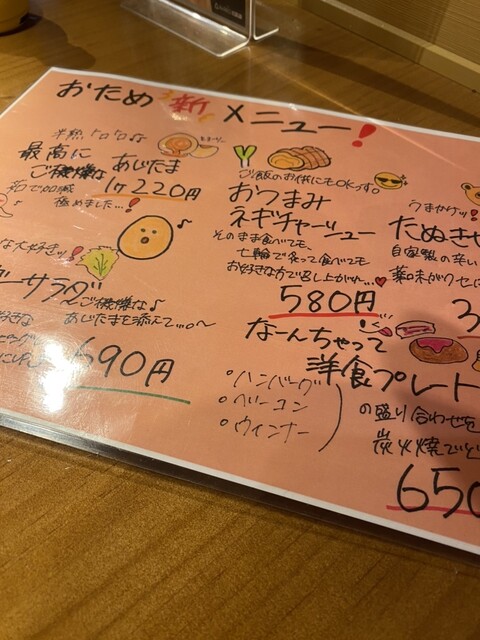 おため新メニュー!
半熟トロトロ♪
最高に
ご機嫌な あじたま
1ケ 220円
茹で加減
極めました...!
ご飯のお供にもOKっす。
おつまみ
ネギチャーシュー
そのまま食べても、
七輪で炙って食べても
お好きな方で召し上がれ...♥
580円
うまかゲッ!!
たぬきせ
自家製の辛い
薬味がクセに
3
な大好きッ!!
ーサラダ
ご機嫌な♪
あじたまを添えて...。〜
好きな
690円
なーんちゃって
洋食プレート
・ハンバーグ
・ベーコン
・ウィンナー
の盛り合わせを
炭火焼でど
650